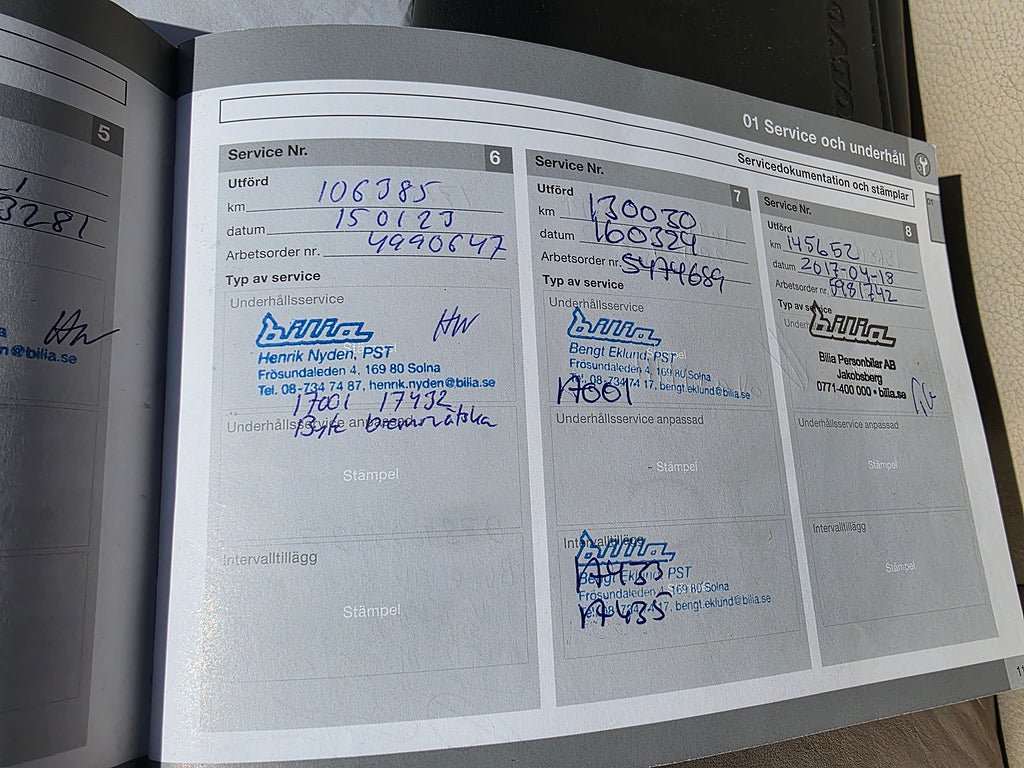 01 Service och underhåll
Servicedokumentation och stämplar
01
5
3281
n@bilia.se
Service Nr. 6
Utförd
km 106385
datum 150123
Arbetsorder nr. 4990647
Typ av service
Underhållsservice
bilia
HN
Henrik Nyden, PST
Frösundaleden 4, 169 80 Solna
Tel. 08-734 74 87, henrik.nyden@bilia.se
17001 17432
Underhållsservice anpassad
Byte bromsvätska
Stämpel
Intervalltillägg
Stämpel
Service Nr. 7
Utförd
km 130030
datum 160324
Arbetsorder nr. 5474689
Typ av service
Underhållsservice
bilia
Bengt Eklund, PST
Frösundaleden 4, 169 80 Solna
Tel. 08-734 74 17, bengt.eklund@bilia.se
17001
Underhållsservice anpassad
Stämpel
Intervalltillägg
bilia
17433
Bengt Eklund, PST
Frösundaleden 4, 169 80 Solna
Tel. 08-734 74 17, bengt.eklund@bilia.se
17435
Service Nr. 8
Utförd
km 145652
datum 2017-04-18
Arbetsorder nr. 5981742
Typ av service
bilia
Bilia Personbilar AB
Jakobsberg
0771-400 000 • bilia.se
Underhållsservice anpassad
Stämpel
Intervalltillägg
Stämpel
11